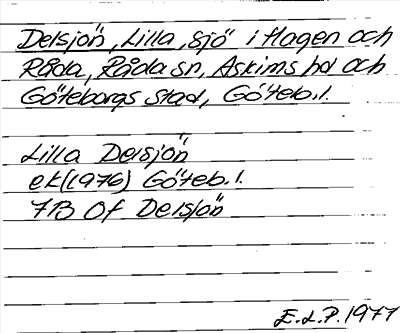 Delsjön, Lilla, sjö i Hagen och
Råda, Råda sn, Askims hd och
Göteborgs stad, Göteb.l.
Lilla Delsjön
ek(1976) Göteb.l.
7B 0f Delsjön
E.L.P. 1977